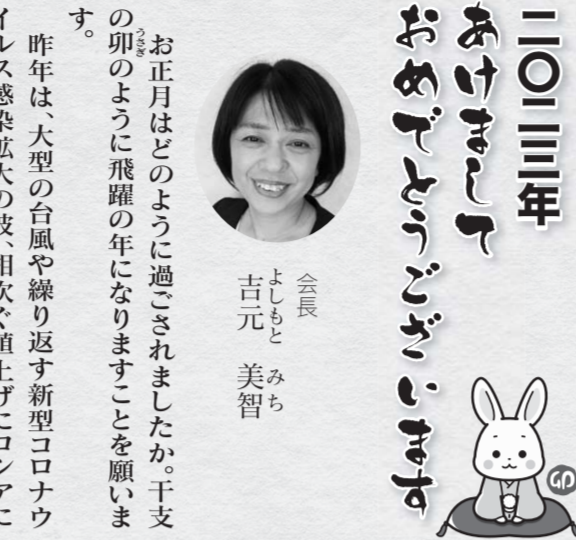 二〇二三年
あけまして
おめでとうございます
会長
よしもと みち
吉元 美智
お正月はどのように過ごされましたか。干支
うさぎ
の卯のように飛躍の年になりますことを願いま
す。
昨年は、大型の台風や繰り返す新型コロナウ
イルス感染拡大の波、相次ぐ値上げにロシアに
GD